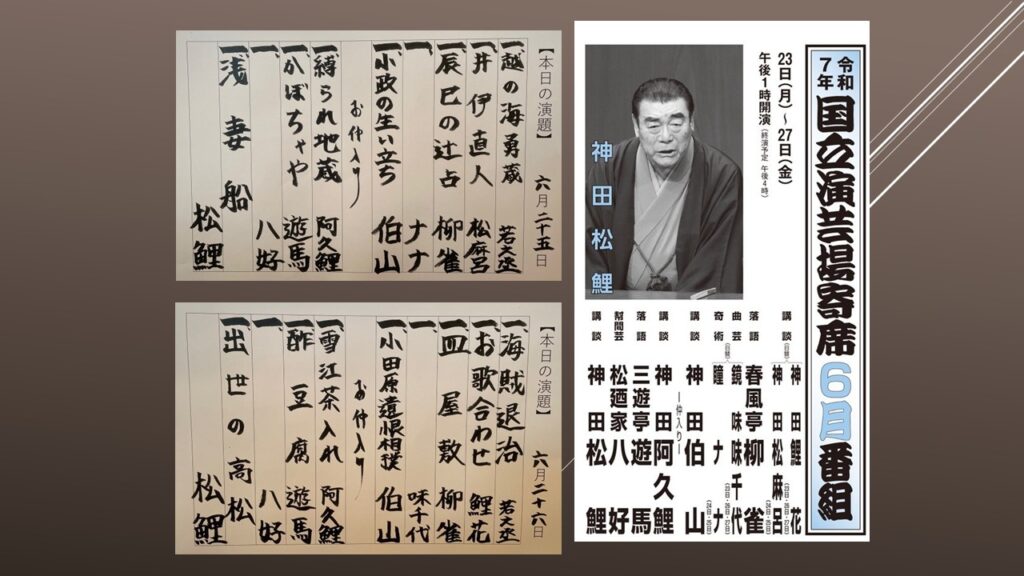 【本日の演題】 六月二十五日
一、越の海勇蔵 若之丞
一、井伊直人 松麻呂
一、辰巳の辻占 柳雀
一、 ナナ
一、小政の生い立ち 伯山
お仲入り
一、縛られ地蔵 阿久鯉
一、かぼちゃや 遊馬
一、 八好
一、浅妻船 松鯉
【本日の演題】 六月二十六日
一、海賊退治 若之丞
一、お歌合わせ 鯉花
一、皿屋敷 柳雀
一、 味千代
一、小田原遺恨相撲 伯山
お仲入り
一、雪江茶入れ 阿久鯉
一、酢豆腐 遊馬
一、 八好
一、出世の高松 松鯉
令和7年 国立演芸場寄席 6月番組
23日(月)~27日(金)
午後1時開演(終演予定 午後4時)
神田松鯉
講談(日替) 神田鯉花(23日・26日・27日)
神田松麻呂(24日・25日)
落語 春風亭柳雀
曲芸(日替) 鏡味味千代(23日・26日・27日)
奇術 瞳ナナ(24日・25日)
講談 神田伯山
―仲入り―
講談 神田阿久鯉
落語 三遊亭遊馬
幇間芸 松廼家八好
講談 神田松鯉